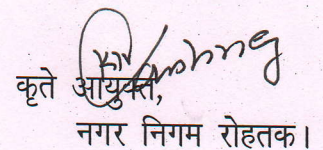 कृते आयुक्त,
नगर निगम रोहतक।